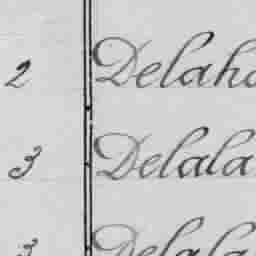 2 Delaha
3 Delala
3 Delala